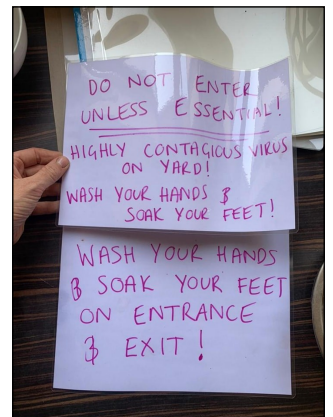 DO NOT ENTER
UNLESS ESSENTIAL!
HIGHLY CONTAGIOUS VIRUS
ON YARD!
WASH YOUR HANDS &
SOAK YOUR FEET!
WASH YOUR HANDS
& SOAK YOUR FEET
ON ENTRANCE
& EXIT!